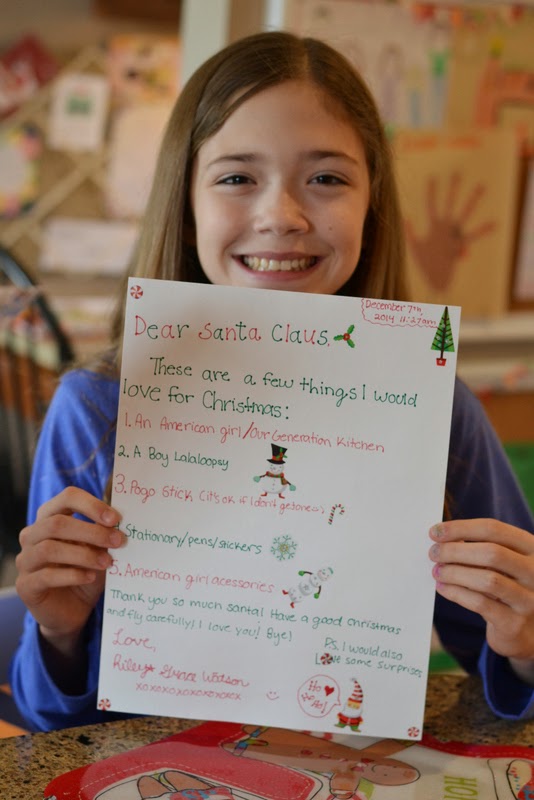 December 7th,
2014 11:27am
Dear Santa Claus,
These are a few things I would
love for Christmas:
1. An American girl/Our Generation Kitchen
2. A Boy Lalaloopsy
3. Pogo Stick (it's ok if I don't get one)
4. Stationary/pens/stickers
5. American girl acessories
Thank you so much santa! Have a good christmas
and fly carefully! I love you! Bye!
Love,
Riley Grace Watson
xoxoxoxoxoxoxox
P.S. I would also
some surprises
Ho
Ho
Ho!
HO